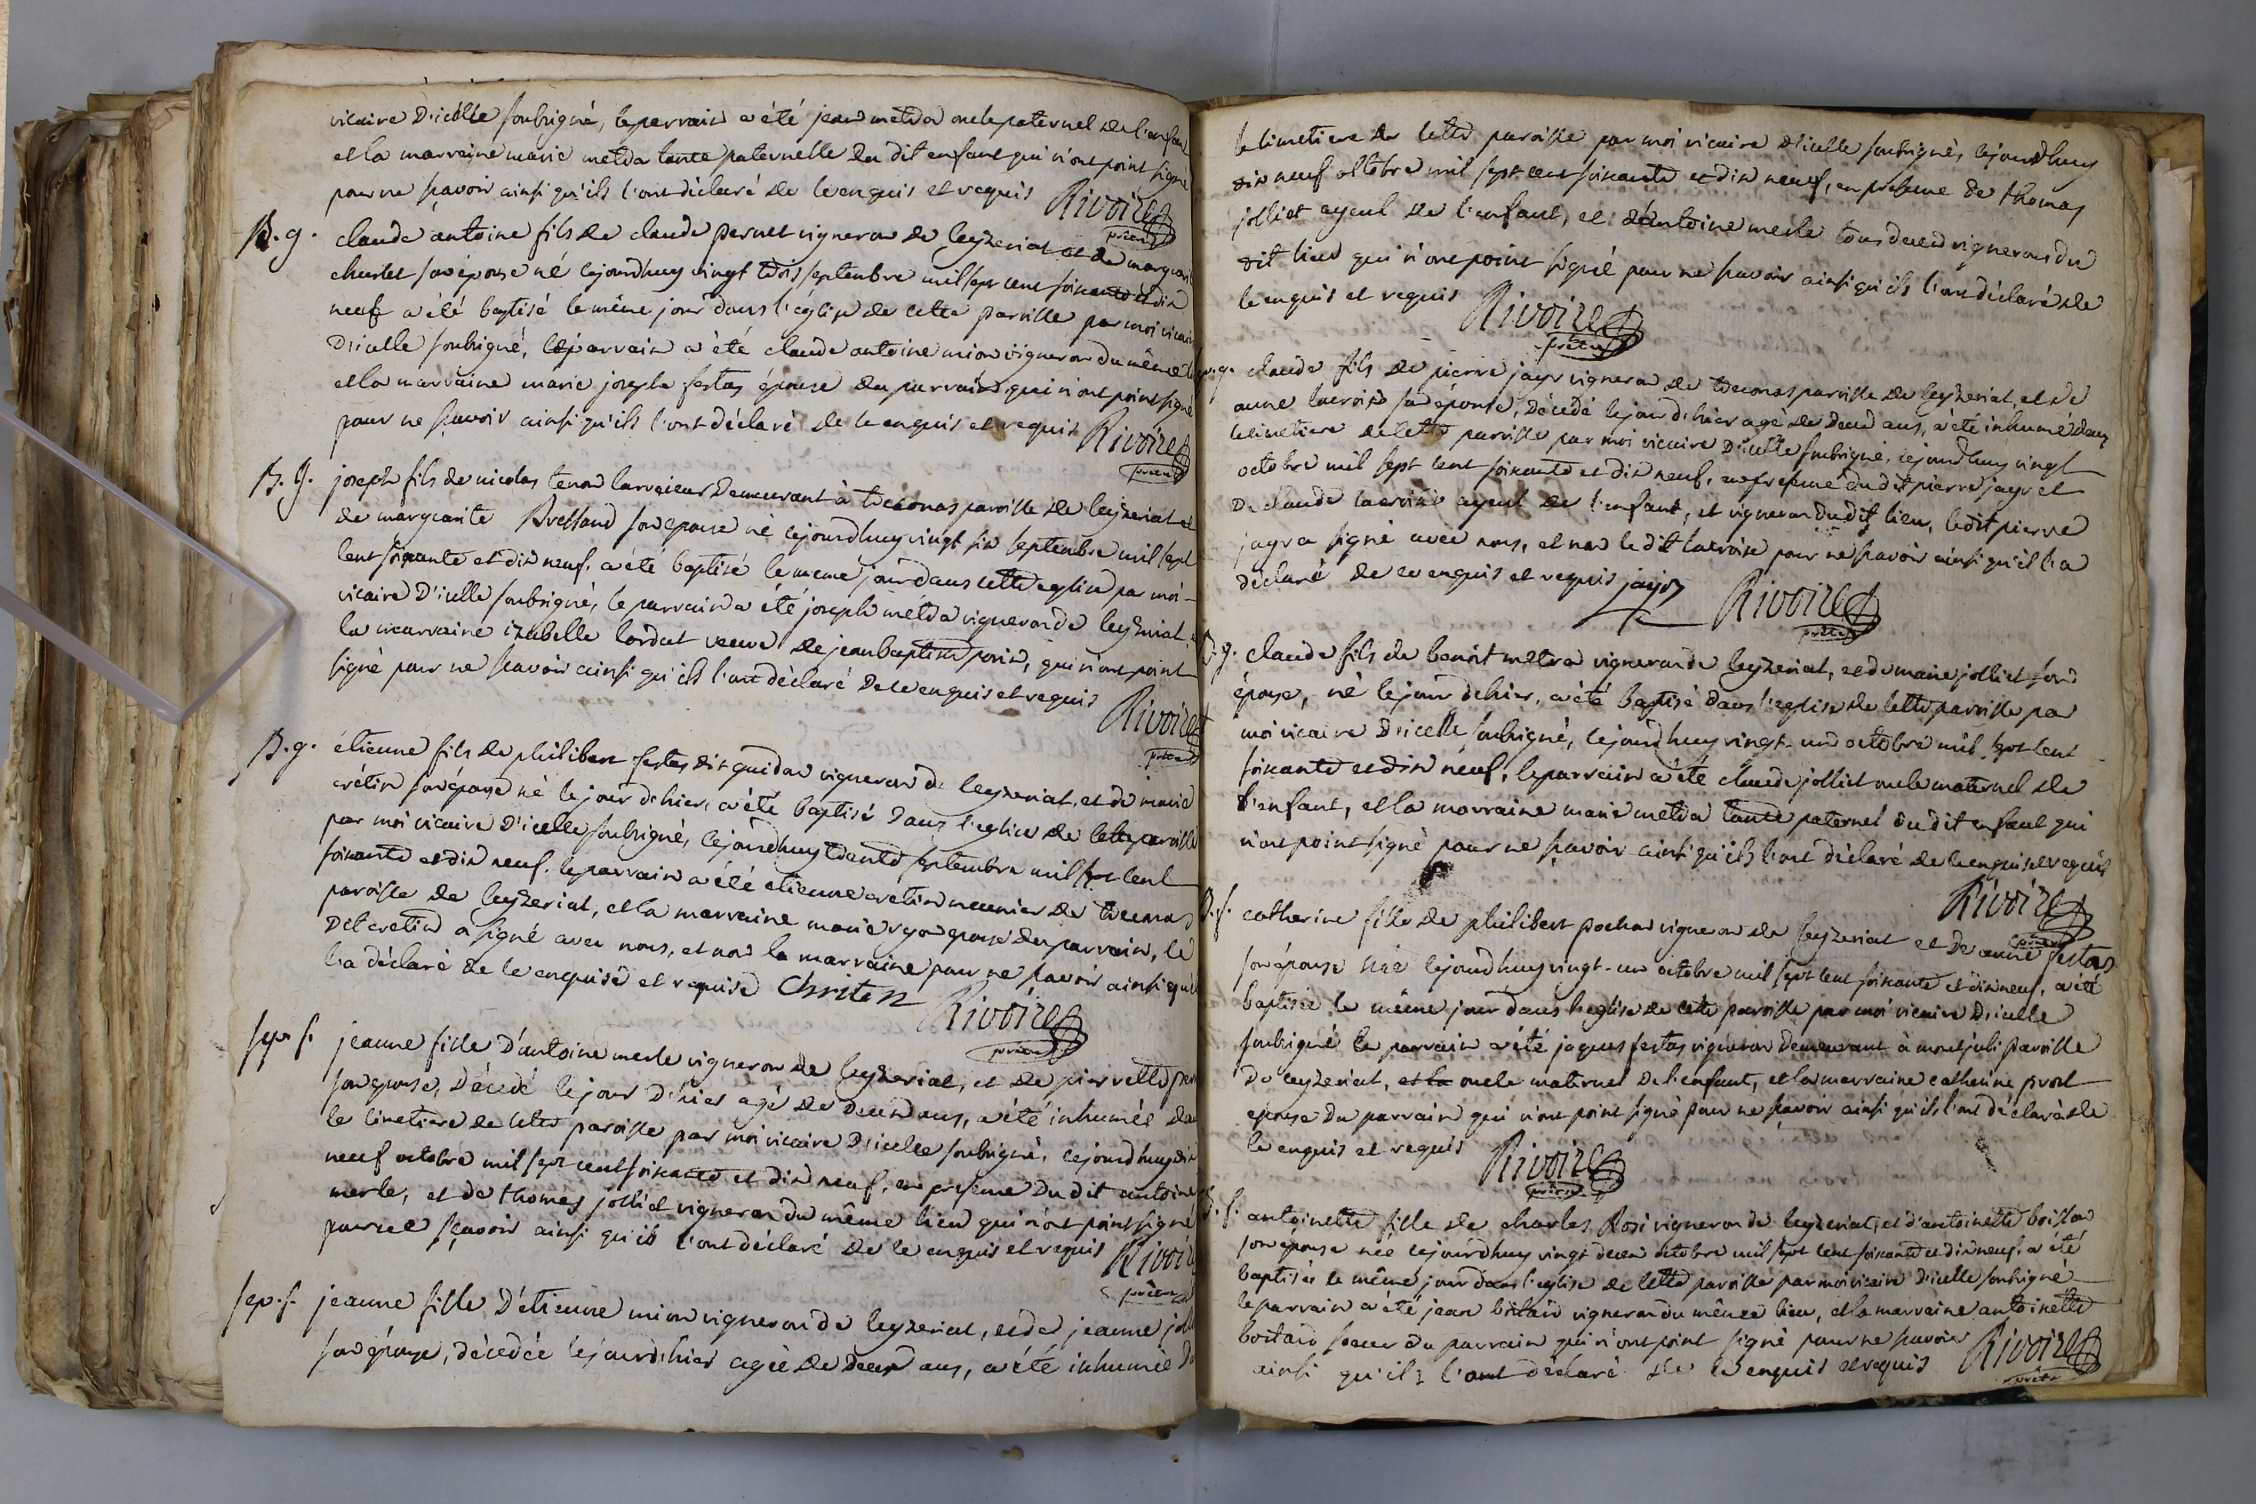 vicaire d'icelle soubsigné, le parrain a été jean metra oncle paternel de l'enfant
et la marraine marie metra tante paternelle du dit enfant qui n'ont point signé
pour ne sçavoir ainsi qu'ils l'ont déclaré de ce enquis et requis Rivoire
prêtre
B. g. claude antoine fils de claude pernet vigneron de ceyzeriat et de marguerite
charlet son épouse né cejourdhuy vingt trois septembre mil sept cent soixante et dix
neuf a été baptisé le même jour dans l'église de cette paroisse par moi vicaire
d'icelle soubsigné, le parrain a été claude antoine mion vigneron du même
et la marraine marie josephe festas épouse du parrain qui n'ont point signé
pour ne sçavoir ainsi qu'ils l'ont déclaré de ce enquis et requis Rivoire
prêtre
B. g. joseph fils de nicolas tenon demeurant à treconas paroisse de ceyzeriat et
de margueritte Bressand son epouse né cejourdhuy vingt six septembre mil sept
cent soixante et dix neuf, a été baptisé le meme jour dans cette eglise par moi
vicaire d'icelle soubsigné, le parrain a été joseph métra vigneron de ceyzeriat
la marraine izabelle lordat veuve de jean baptiste qui n'ont point
signé pour ne sçavoir ainsi qu'ils l'ont déclaré de ce enquis et requis
Rivoire
prêtre
B. g. étienne fils de philibert festas dit guidon vigneron de ceyzeriat, et de marie
crétin son épouse né le jour d'hier, a été baptisé dans l'eglise de cette paroisse
par moi vicaire d'icelle soubsigné, cejourdhuy trente septembre mil sept cent
soixante et dix neuf. le parrain a été etienne cretin meunier de treconas
paroisse de ceyzeriat, et la marraine marie epouse du parrain, le
dit cretin a signé avec nous, et non la marraine pour ne sçavoir ainsi qu'elle
l'a déclaré de ce enquise et requise Chriten Rivoire
prêtre
sep. f. jeanne fille d'antoine merle vigneron de ceyzeriat, et de pierrette
son epouse, décédé le jour d'hier agé de deux ans, a été inhumée
le cimetiere de cette paroisse par moi vicaire d'icelle soubsigné, cejourdhuy dix
neuf octobre mil sept cent soixante et dix neuf, en presence du dit antoine
merle, et de thomas jolliet vigneron du même lieu qui n'ont point signé
pour ne sçavoir ainsi qu'ils l'ont déclaré de ce enquis et requis Rivoire
prêtre
sep. f. jeanne fille d'etienne mion vigneron de ceyzeriat, et de jeanne
son épouse, décédée le jour d'hier agée de deux ans, a été inhumée
le cimetiere de cette paroisse par moi vicaire d'icelle soubsigné, cejourdhuy
dix neuf octobre mil sept cent soixante et dix neuf, en presence de thomas
jolliet ayeul de l'enfant, et d'antoine merle tous deux vignerons du
dit lieu qui n'ont point signé pour ne sçavoir ainsi qu'ils l'ont déclaré de
ce enquis et requis Rivoire
prêtre
g. claude fils de pierre jayr vigneron de treconas paroisse de ceyzeriat, et de
anne lacroix son épouse, décédé le jour d'hier agé de deux ans, a été inhumé dans
le cimetiere de cette paroisse par moi vicaire d'icelle soubsigné, cejourdhuy vingt
octobre mil sept cent soixante et dix neuf, en presence du dit pierre jayr et
de claude lacroix ayeul de l'enfant, et vigneron du dit lieu, le dit pierre
jayr a signé avec nous, et non le dit lacroix pour ne sçavoir ainsi qu'il l'a
déclaré de ce enquis et requis Rivoire
prêtre
B. g. claude fils de benoit metra vigneron de ceyzeriat, et de marie jolliet son
épouse, né le jour d'hier, a été baptisé dans l'eglise de cette paroisse par
moi vicaire d'icelle soubsigné, cejourdhuy vingt-un octobre mil sept cent
soixante et dix neuf, le parrain a été claude jolliet oncle maternel de
l'enfant, et la marraine marie metra tante paternel du dit enfant qui
n'ont point signé pour ne sçavoir ainsi qu'ils l'ont déclaré de ce enquis et requis
Rivoire
prêtre
B. f. catherine fille de philibert pochon vigneron de ceyzeriat et de anne festas
son épouse née cejourdhuy vingt-un octobre mil sept cent soixante et dix neuf, a été
baptisée le même jour dans l'eglise de cette paroisse par moi vicaire d'icelle
soubsigné le parrain a été jaques festas vigneron demeurant à montjuli paroisse
de ceyzeriat, et la oncle maternel de l'enfant, et la marraine catherine
epouse du parrain qui n'ont point signé pour ne sçavoir ainsi qu'ils l'ont déclaré de
ce enquis et requis Rivoire
prêtre
B. f. antoinette fille de charles Rosi vigneron de ceyzeriat, et d'antoinette
son epouse née cejourdhuy vingt deux octobre mil sept cent soixante et dix neuf, a été
baptisée le même jour dans l'eglise de cette paroisse par moi vicaire d'icelle soubsigné
le parrain a été jean boitard vigneron du même lieu, et la marraine antoinette
boitard soeur du parrain qui n'ont point signé pour ne sçavoir
ainsi qu'ils l'ont déclaré de ce enquis et requis Rivoire
prêtre